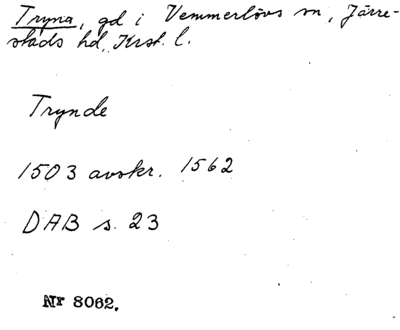 Tryna, gd i Vemmerlövs sn, Järre-
stads hd, Krst. l.
Trynde
1503 avskr. 1562
DAB s. 23
Nr 8062.